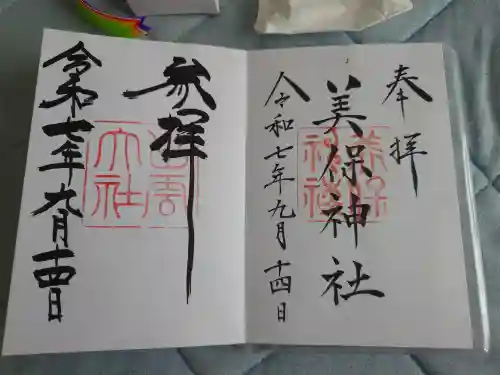 奉拝
美保神社
令和七年九月十四日
参拝
出雲大社
令和七年九月十四日